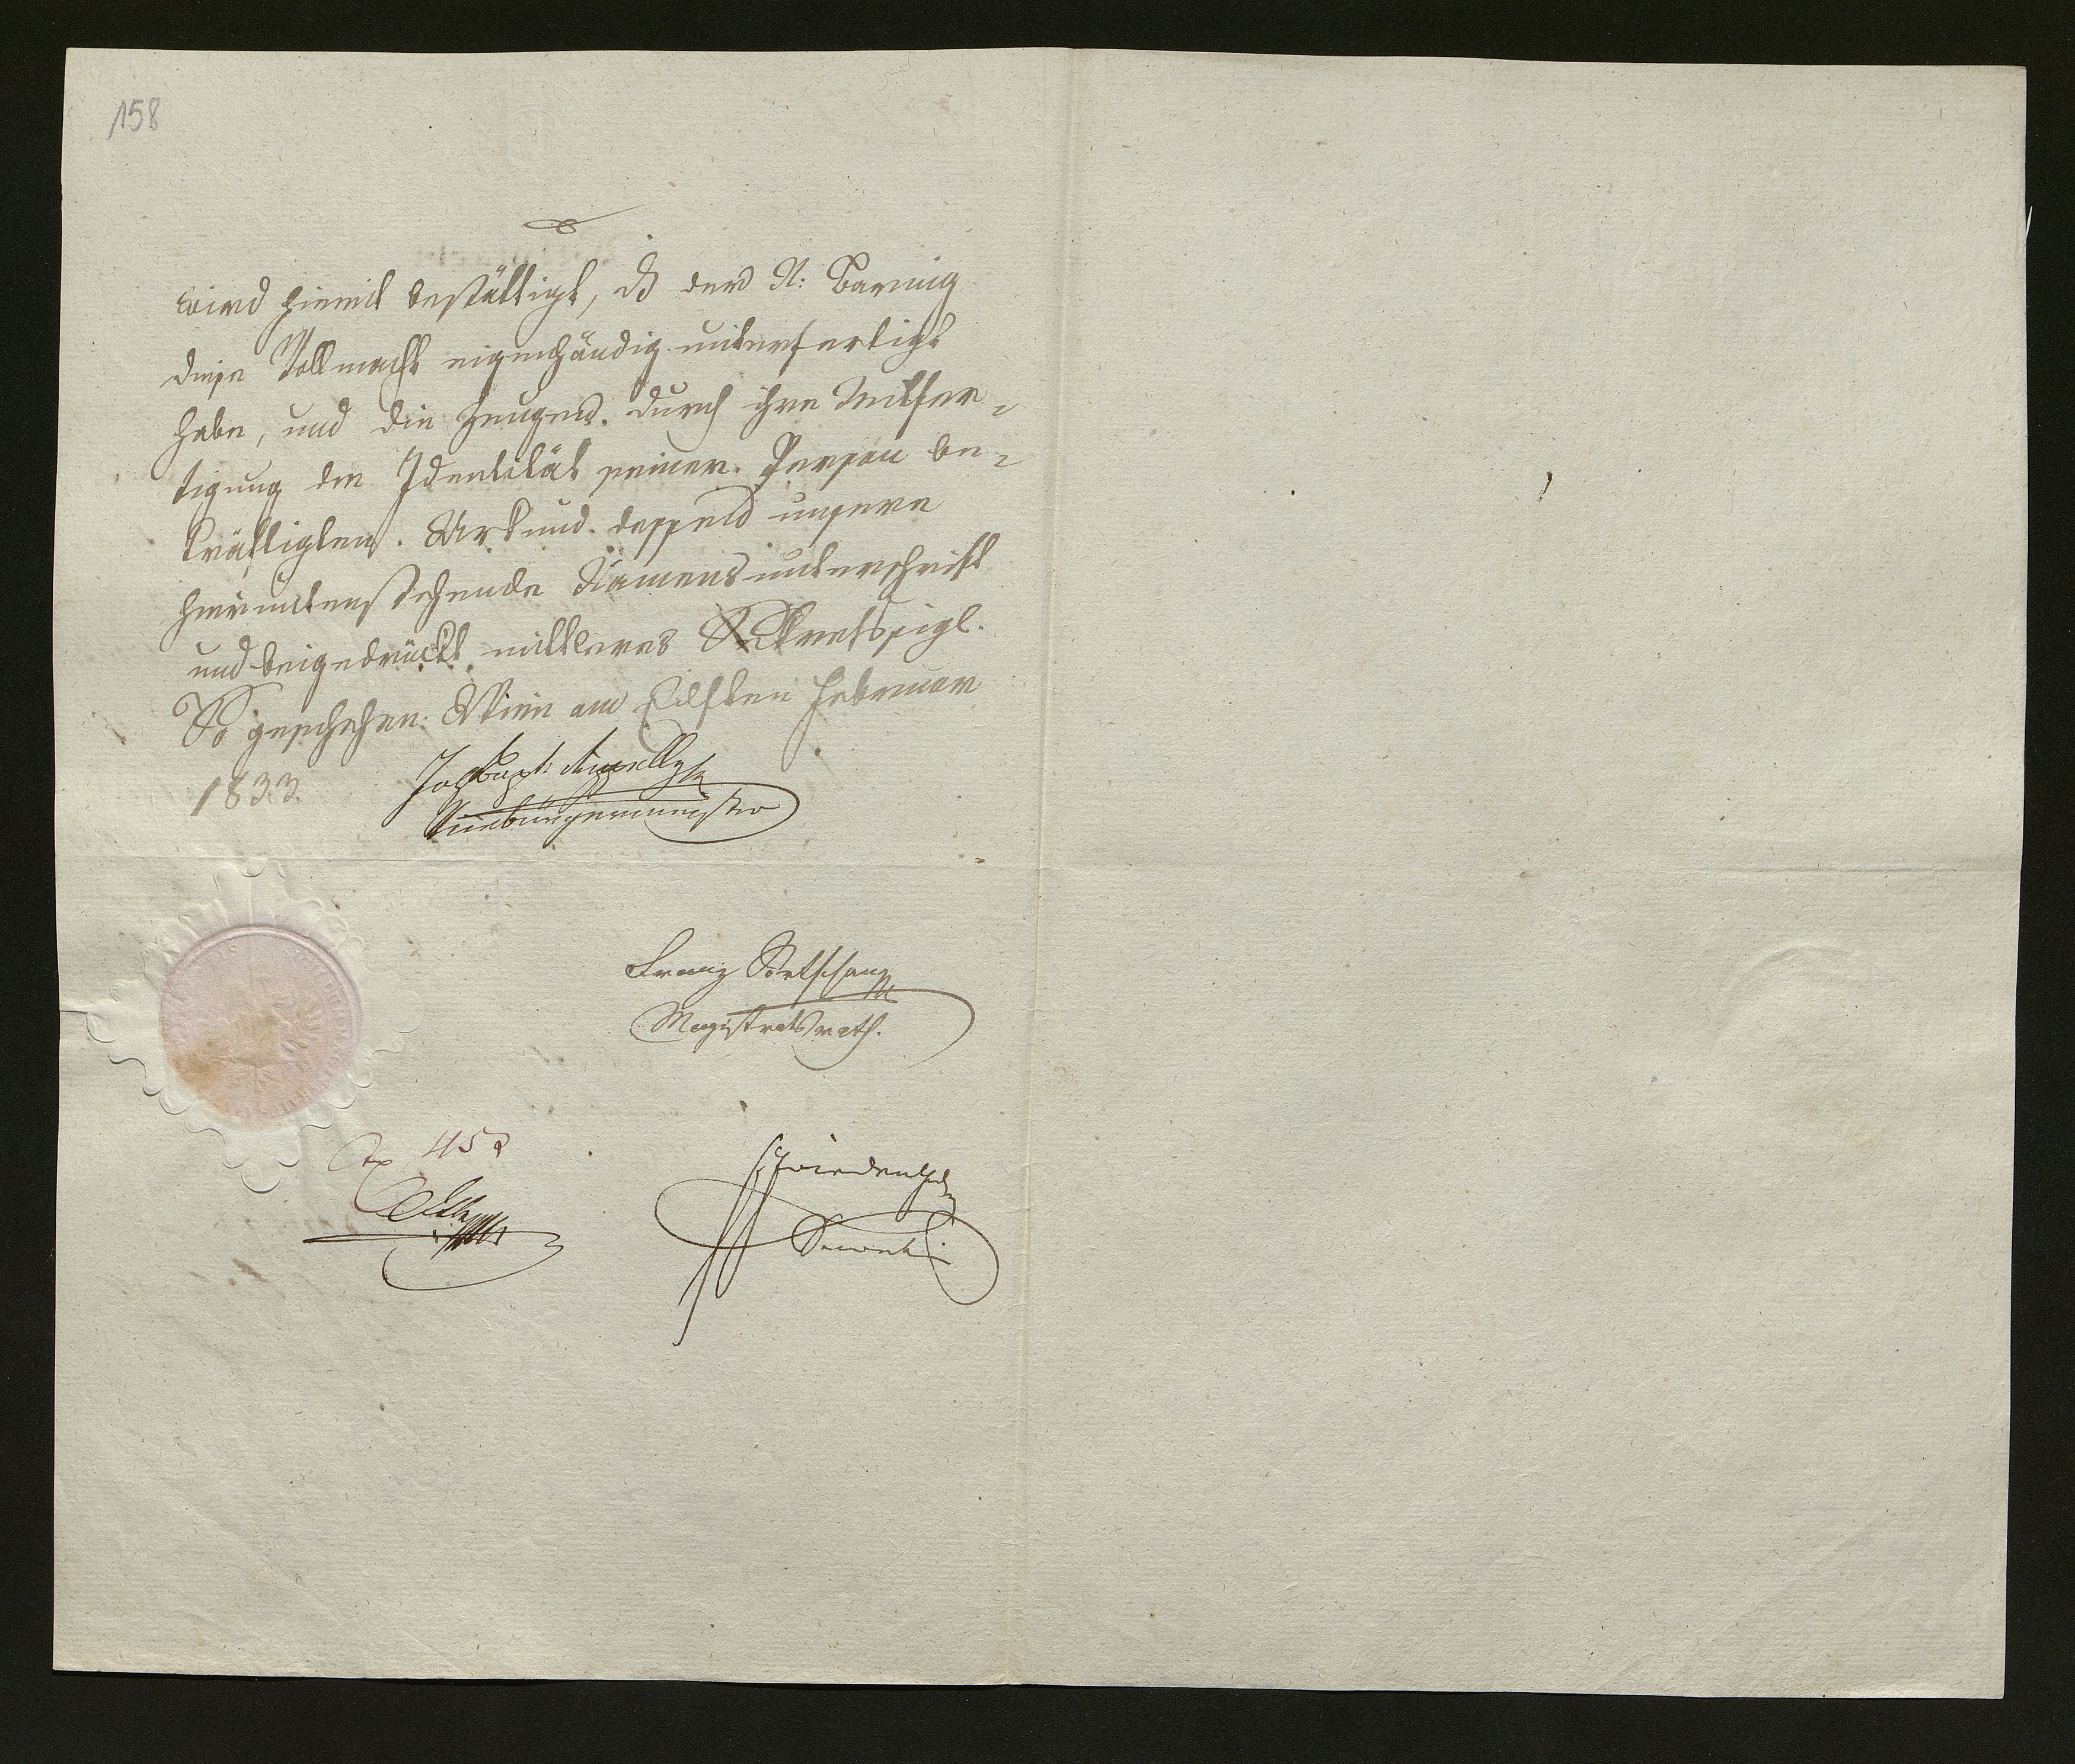 158
Es
wird hiemit bestättigt, dß der N: Barnig
diese Vollmacht eigenhändig unterfertigt
habe, und die Zeugen durch ihre Mitfer-
tigung die Identität seiner Person be-
kräftigten. Urkund dessend unsere
hieruntenstehende Namensunterschrift
und beigedrückt mittleres Sekretsigl.
So geschehen Wien am Eilften Februar
1833.
Joh Bapt:
Vicebürgermeister
Franz
Magistratsrath.
Exp 45 x
Secret